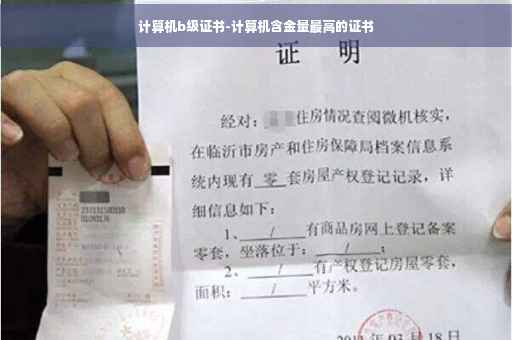 计算机b级证书-计算机含金量最高的证书
证 明
经对：住房情况查阅微机核实，
在临沂市房产和住房保障局档案信息系
统内现有 零 套房屋产权登记记录，详
细信息如下：
1、 / 有商品房网上登记备案
零套，坐落位于： / ；
2、 / 有产权登记房屋零套，
面积： / 平方米。
03 月 18 日